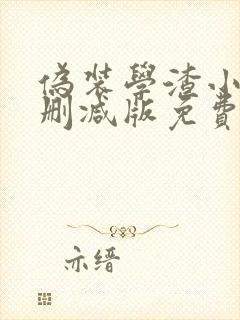 偽裝學渣小
刪減版免費
亦缙